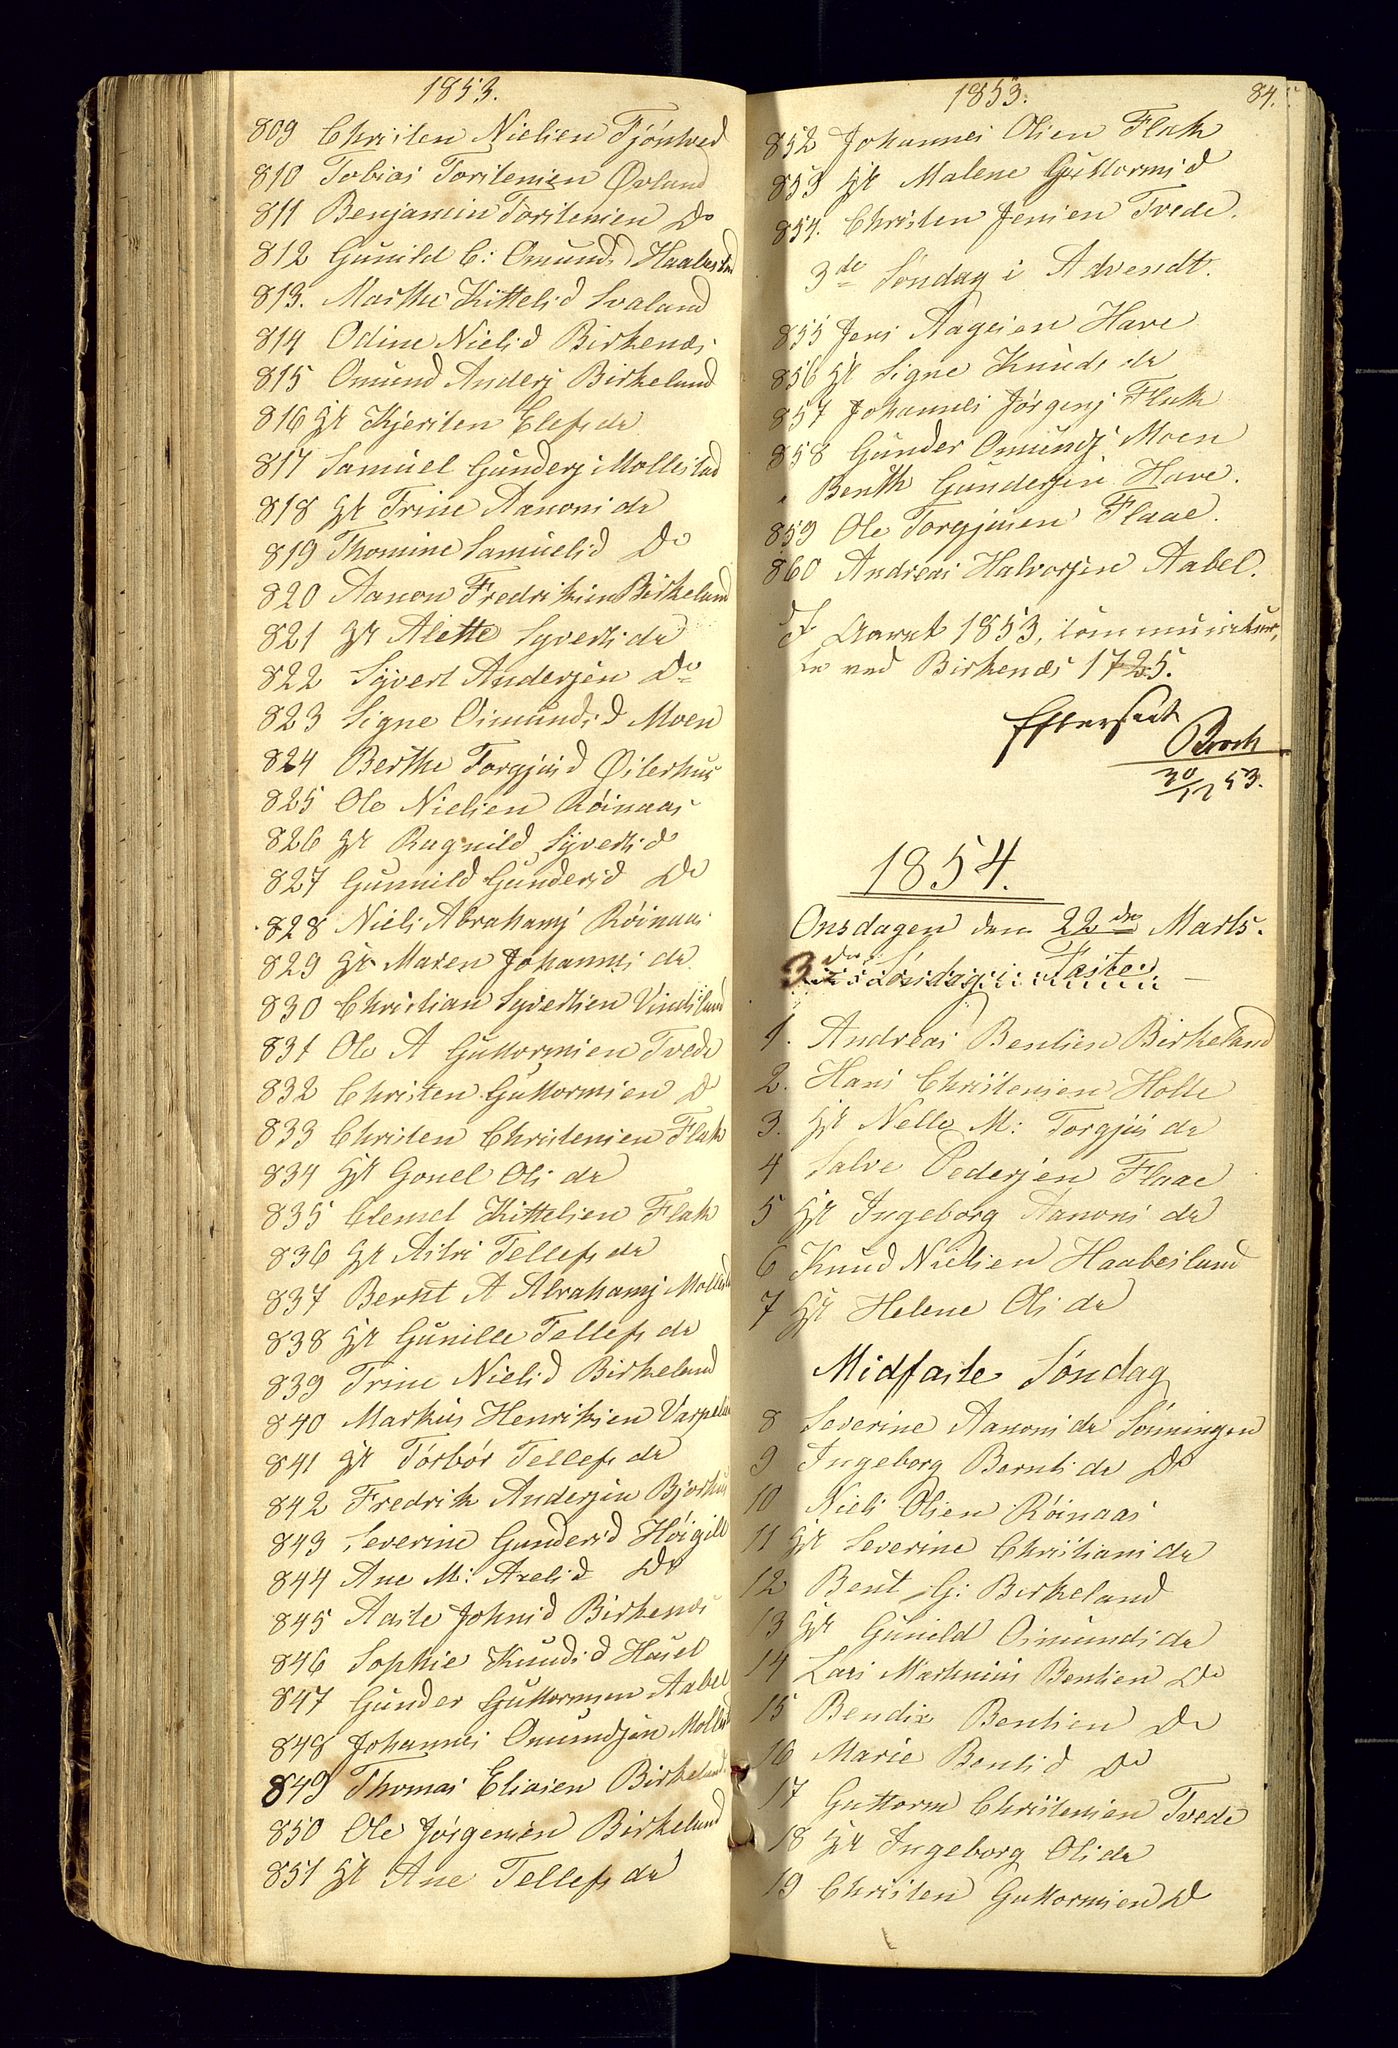 1853.
809 Christen Nielsen Tjöntved
810 Tobias Torstensen Øvland
811 Benjamin Torstensen Do
812 Gunild C: Omunds Haabesland
813. Marthe Kittelsd Svaland
814 Odine Nielsd Birkenæs
815 Omund Anders Birkeland
816 Hr Kjersten Elefs dr
817 Samuel Gunders Mollestad
818 Hr Trine Aanons dr
819 Thomine Samuelsd Do
820 Aanon Fredriksen Birkeland
821 Hr Alette Syverts dr
822 Syvert Andersen Do
823 Signe Osmundsd Moen
824 Berthe Torgjusd Øilerhus
825 Ole Nielsen Röinaas
826 Hr Ragnild Syvertsd
827 Gunnild Gundersd Do
828 Niels Abrahams Röinaas
829 Hr Maren Johannes dr
830 Christian Syvertsen Vindsland
831 Ole A Guttormsen Tvede
832 Christen Guttormsen Do
833 Christen Christensen Flak
834 Hr Gonel Ols dr
835 Clemet Kittelsen Flak
836 Hr Asbr Tellefs dr
837 Bernt A Abrahams Mollestd
838 Hr Gunille Tellefs dr
839 Trine Nielsd Birkeland
840 Markus Henriksen Varpelan
841 Hr Torbör Tellefs dr
842 Fredrik Andersen Bjorkus
843 Severine Gundersd Höigilt
844 Ane M: Axelsd Do
845 Aaste Johnsd Birkenæs
846 Sophie Knudsd Husel
847 Gunder Guttormsen Aabel
848 Johannes Omundsen Mollest
849 Thomas Eliasen Birkeland
850 Ole Jörgensen Birkeland
851 Hr Ane Tellefs dr
1853. 84.
852 Johannes Olsen Flak
853 Hr Malene Guttormsd
854. Christen Jensen Tvede.
3de Söndag i Advendt.
855 Jens Aagesen Have
856 Hr Signe Knuds dr
857 Johannes Jörgens Flak
858 Gunder Omunds Moen
" Benth Gundersen Have.
859 Ole Torgjusen Flaae.
860 Andreas Halvorsen Aabel.
I Aaret 1853, communicer-
te ved Birkenæs 1725.
Efterseet
Broch
30/12 53.
1854.
Onsdagen den 22de Marts.
3de Söndag i Fasten
1. Andreas Bentsen Birkeland
2. Hans Christensen Holte
3. Hr Nelle M: Torgjus dr
4 Salve Pedersen Flaae
5 Hr Ingeborg Aanons dr
6 Knud Nielsen Haabesland
7 Hr Helene Ols dr
Midfaste Söndag
8 Severine Aanons dr Sönningen
9 Ingeborg Bernts dr Do
10 Niels Olsen Röinaas
11 Hr Severine Christians dr
12 Bent G: Birkeland
13 Hr Gunild Osmunds dr
14 Lars Mathnius Bentsen Do
15 Bendix Bentsen Do
16 Marie Bentsd Do
17 Guttorm Christensen Tvede
18 Hr Ingeborg Ols dr
19 Christen Guttormsen Do